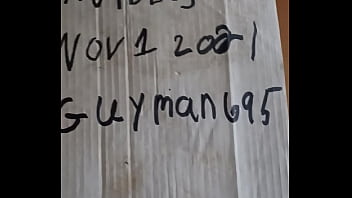 NOV 1 2021
Guyman695